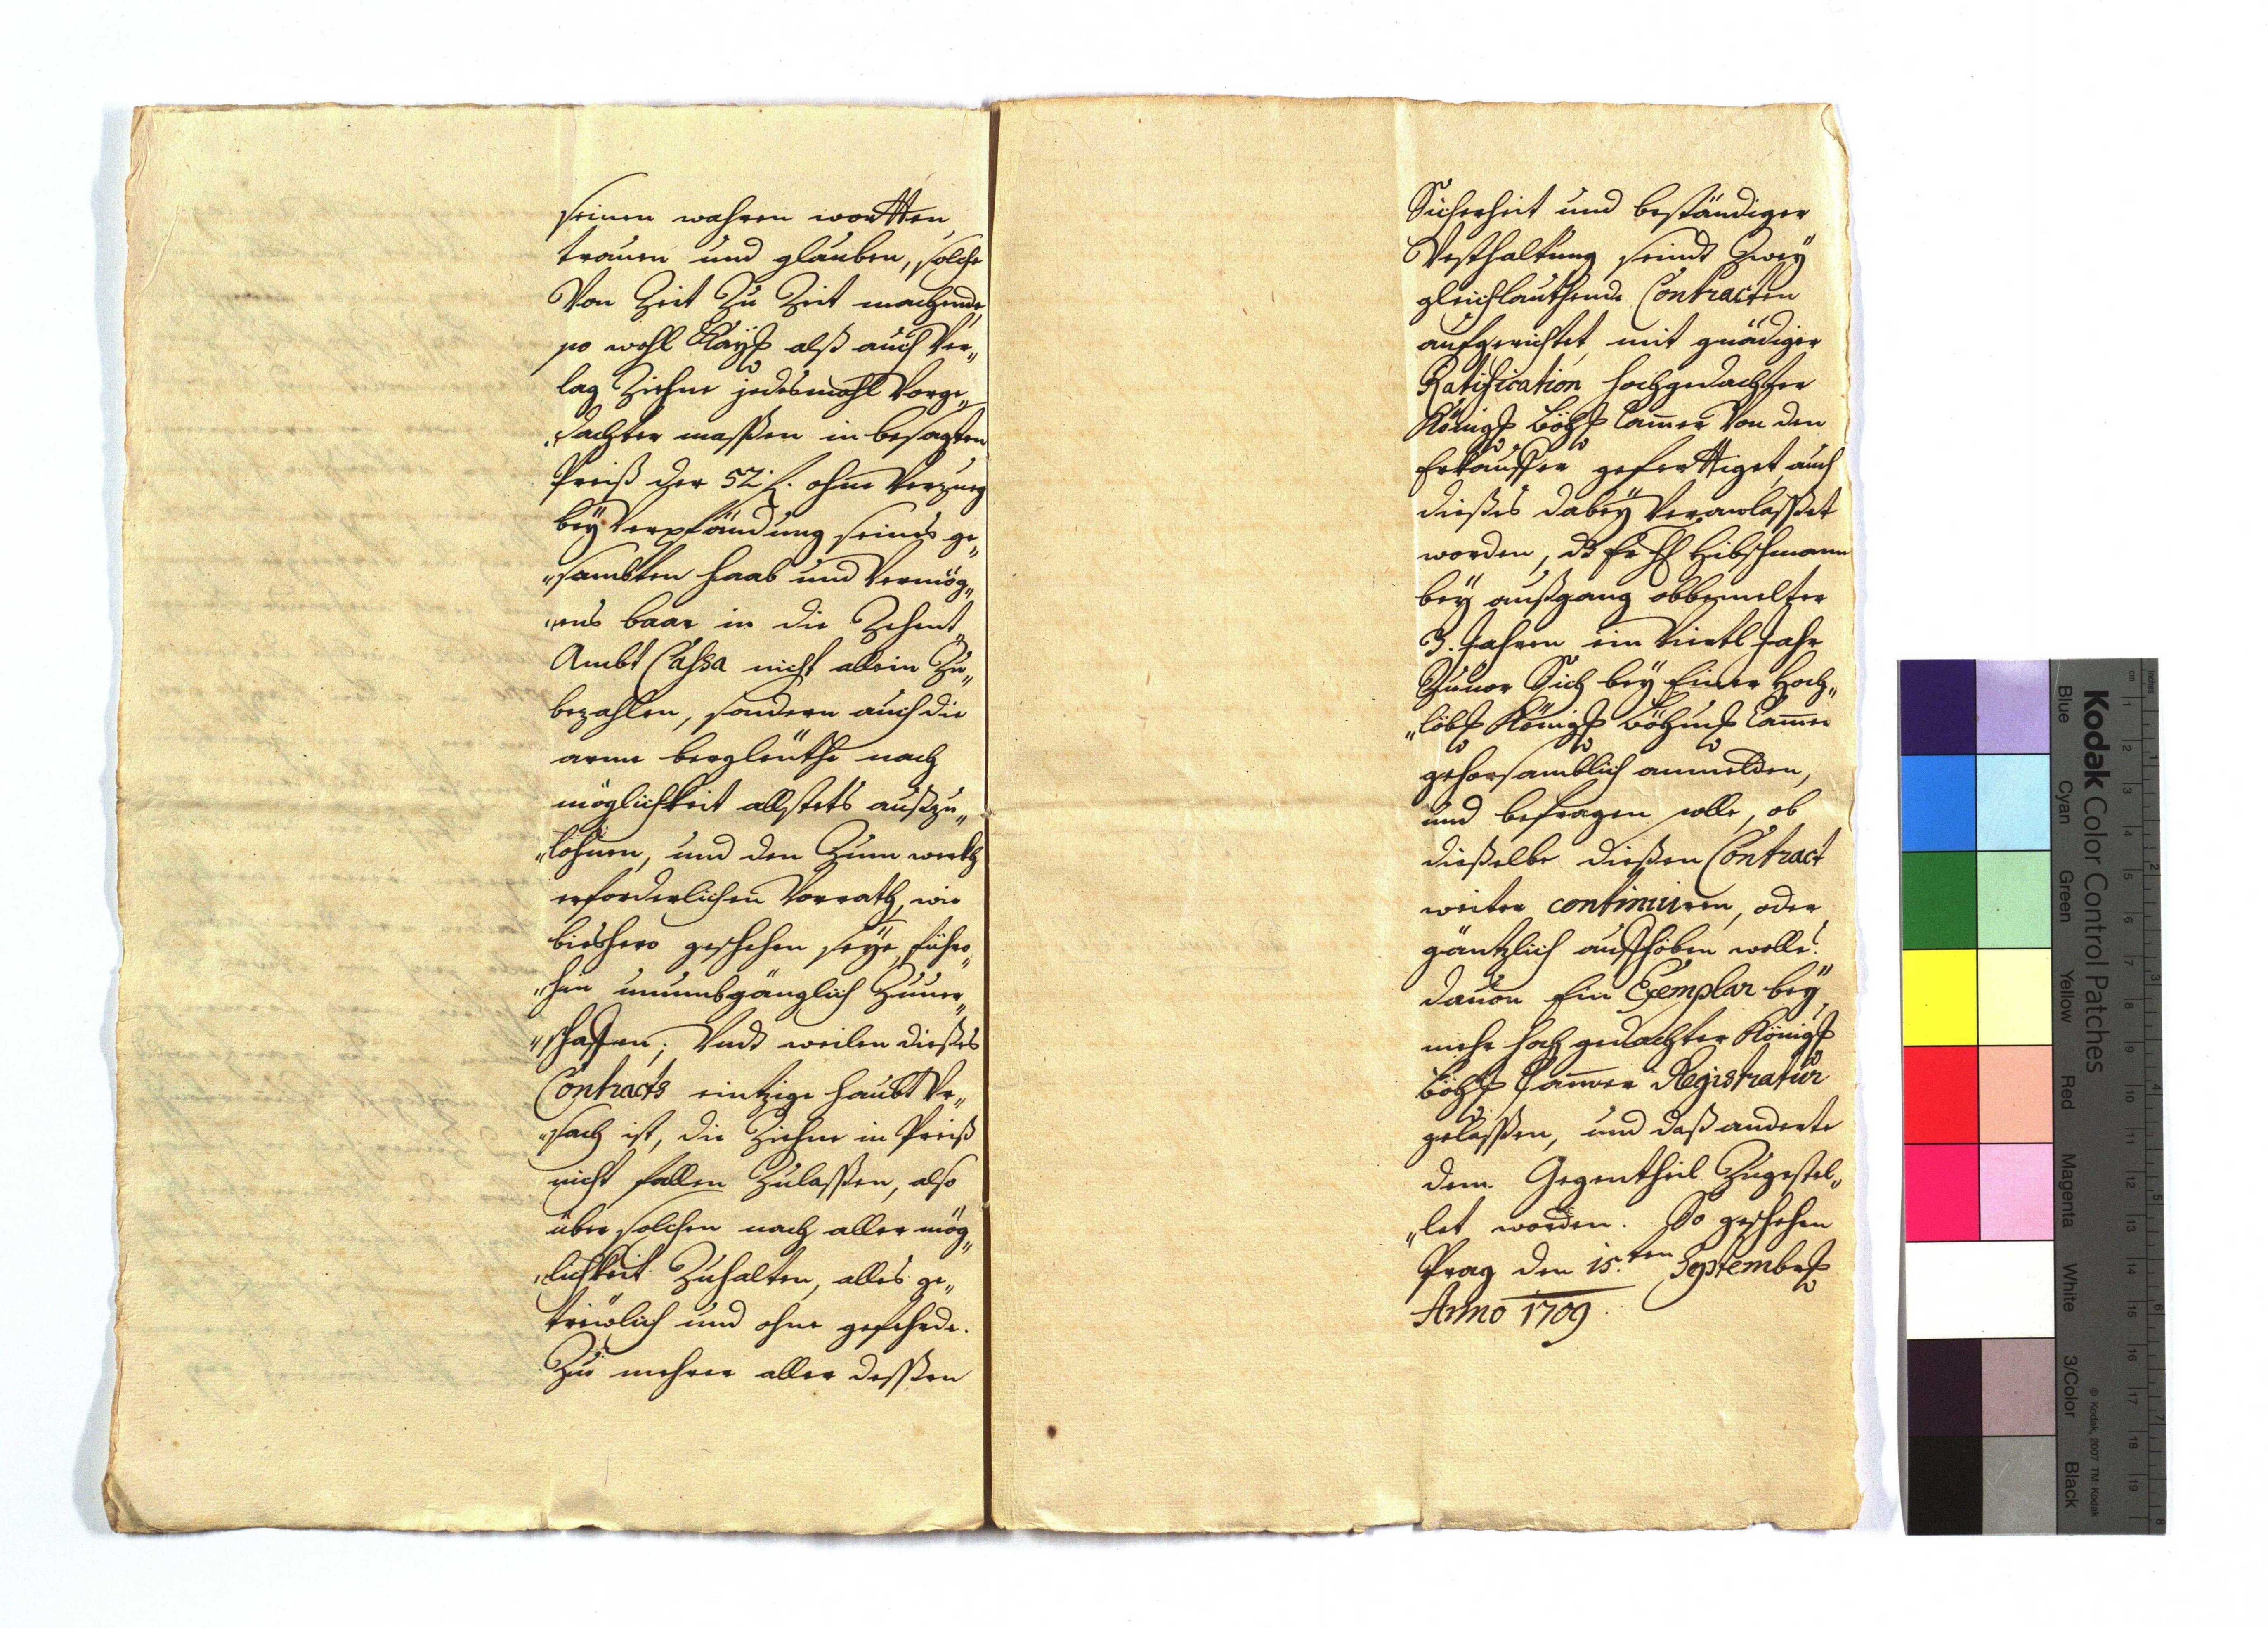 seinen wahren wortten,
trauen und glauben, solche
Von Zeit Zu Zeit machende,
so wohl Kayß alß auch Ver„
lag Ziehne jedesmahl Vorge„
„dachter massen in besagten
Preiß der 52 f. ohne Verzueg
bey Verpfändung seines ge„
„sambten haab und Vermög„
„ens baar in die Zehent„
Ambt Cassa nicht allein Zu„
bezahlen, sondern auch die
arme bergleüthe nach
möglichkeit allstets außzu„
„löhnen, und den Zum werkh
erforderlichen Vorrath, wie
bieshero geschehen seye, führo„
„hin unumbgänglich Zuuer„
„schaffen; Undt weilen dießes
Contracts eintzige haubt Vr„
„sach ist, die Ziehne in Preiß
nicht fallen Zulassen, also
über solchen nach aller mög„
„lichkeit Zuhalten, alles ge„
treülich und ohne gefehrde.
Zu mehrer aller dessen
Sicherheit und beständiger
Vesthaltung seindt Zwey
gleichlauthende Contracten
aufgerichtet, mit gnädiger
Ratification hochgedachter
Königl Böhl Cam̄er Von den
Erkauffer gefertiget, auch
dießes dabey Veranlasset
worden, dz Er H Hibschmann
bey außgang obbemelter
3. Jahren ein Viertl Jahr
Zuuor Sich bey Einer Hoch„
„löbl Königl Böhml Cam̄er
gehorsamblich anmelden,
und befragen solle, ob
dieselbe dießen Contract
weiter continuiren, oder
gäntzlich aufheben wolle.
dauon Ein Exemplar bey
mehr hoch gedachter Königl
Böhl Cam̄er Registratur
gelassen, und daß anderte
dem Gegentheil Zugestel„
„let worden. So geschehen
Prag den 15.ten Septembr
Anno 1709
Kodak Color Control Patches
© Kodak, 2007 TM: Kodak
Blue Cyan Green Yellow Red Magenta White 3/Color Black
inches 1 2 3 4 5 6 7 8
cm 1 2 3 4 5 6 7 8 9 10 11 12 13 14 15 16 17 18 19